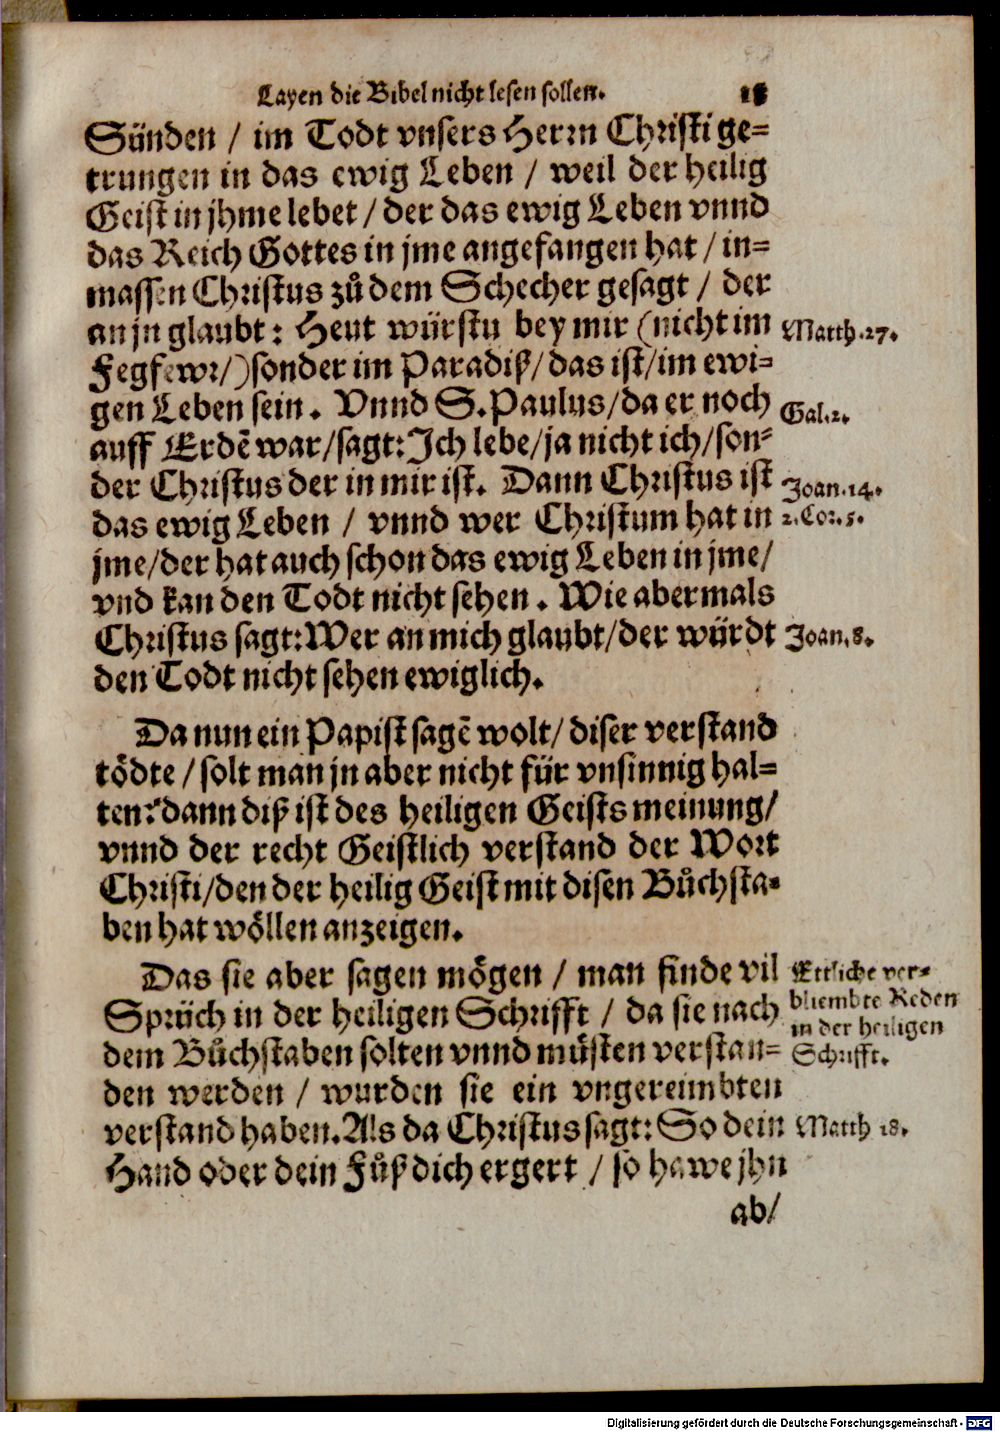 Layen die Bibel nicht lesen sollen.
Sünden / im Todt vnsers Herrn Christi ge=
trungen in das ewig Leben / weil der heilig
Geist in jhme lebet / der das ewig Leben vnnd
das Reich Gottes in jme angefangen hat / in=
massen Christus zů dem Schecher gesagt / der
an jn glaubt: Heut würstu bey mir (nicht im
Matth. 27.
Fegfewr/) sonder im Paradiß / das ist / im ewi=
gen Leben sein. Vnnd S. Paulus / da er noch
Gal. 2.
auff Erdē war / sagt: Ich lebe / ja nicht ich / son=
der Christus der in mir ist. Dann Christus ist
Joan. 14.
das ewig Leben / vnnd wer Christum hat in
2. Cor. 5.
jme / der hat auch schon das ewig Leben in jme /
vnd kan den Todt nicht sehen. Wie abermals
Christus sagt: Wer an mich glaubt / der würdt
Joan. 8.
den Todt nicht sehen ewiglich.
Da nun ein Papist sagē wolt / diser verstand
tödte / solt man jn aber nicht für vnsinnig hal=
ten? dann diß ist des heiligen Geists meinung /
vnnd der recht Geistlich verstand der Wort
Christi / den der heilig Geist mit disen Bůchsta=
ben hat wöllen anzeigen.
Das sie aber sagen mögen / man finde vil
Ettliche ver=
Sprüch in der heiligen Schrifft / da sie nach
bliembte Reden
in der heiligen
dem Bůchstaben solten vnnd müsten verstan=
Schrifft.
den werden / wurden sie ein vngereimbten
verstand haben. Als da Christus sagt: So dein
Matth 18.
Hand oder dein Fůß dich ergert / so hawe jhn
ab /
Digitalisierung gefördert durch die Deutsche Forschungsgemeinschaft - DFG